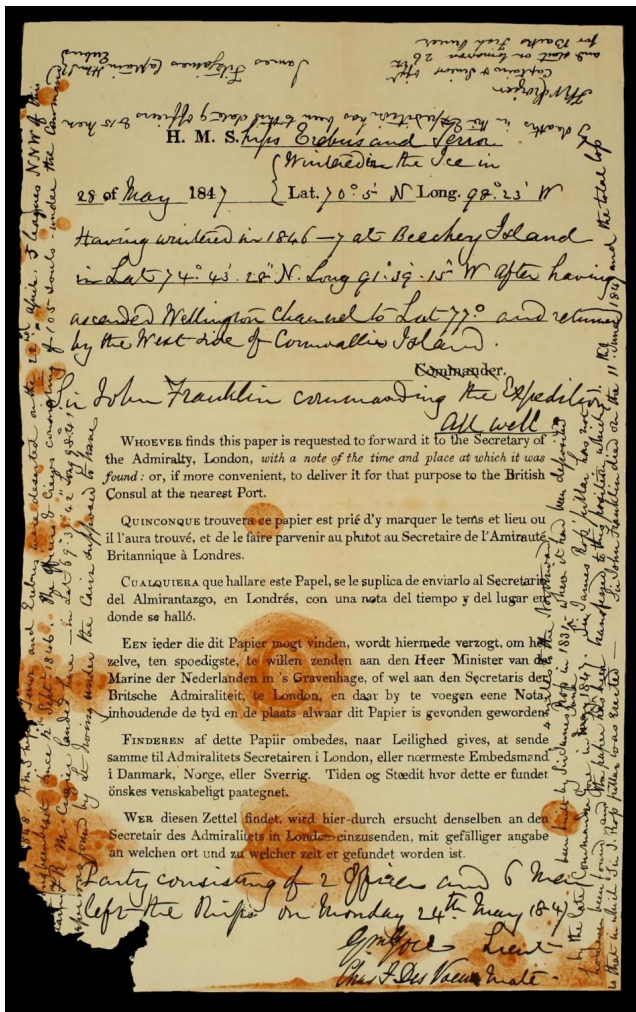 H. M. Ships Erebus and Terror
Wintered in the Ice in
28 of May 1847 Lat. 70° 5' N Long. 98° 23' W
Having wintered in 1846–7 at Beechey Island
in Lat 74° 43' 28" N. Long 91° 39' 15" W after having
ascended Wellington Channel to Lat 77° and returned
by the West side of Cornwallis Island.
Commander.
Sir John Franklin commanding the Expedition
All well
WHOEVER finds this paper is requested to forward it to the Secretary of
the Admiralty, London, with a note of the time and place at which it was
found: or, if more convenient, to deliver it for that purpose to the British
Consul at the nearest Port.
QUINCONQUE trouvera ce papier est prié d'y marquer le tems et lieu ou
il l'aura trouvé, et de le faire parvenir au plutot au Secretaire de l'Amirauté
Britannique à Londres.
CUALQUIERA que hallare este Papel, se le suplica de enviarlo al Secretario
del Almirantazgo, en Londrés, con una nota del tiempo y del lugar en
donde se halló.
EEN ieder die dit Papier mogt vinden, wordt hiermede verzogt, om het
zelve, ten spoedigste, te willen zenden aan den Heer Minister van de
Marine der Nederlanden in 's Gravenhage, of wel aan den Secretaris der
Britsche Admiraliteit, te London, en daar by te voegen eene Nota,
inhoudende de tyd en de plaats alwaar dit Papier is gevonden geworden.
FINDEREN af dette Papiir ombedes, naar Leilighed gives, at sende
samme til Admiralitets Secretairen i London, eller nœrmeste Embedsmand
i Danmark, Norge, eller Sverrig. Tiden og Stœdit hvor dette er fundet
önskes venskabeligt paategnet.
WER diesen Zettel findet, wird hier-durch ersucht denselben an den
Secretair des Admiralitets in London einzusenden, mit gefälliger angabe
an welchen ort und zu welcher zeit er gefundet worden ist.
Party consisting of 2 Officers and 6 Men
left the Ships on Monday 24th May 1847
Gm Gore Lieut
Chas F Des Voeux Mate
1848 H M Ships Terror and Erebus were deserted on the 22nd April 5 leagues NNW of this
been beset since 12th Septr 1846. The Officers & Crews consisting of 105 souls under the Command
tain F. R. M. Crozier landed here in Lat 69° 37' 42" Long 98° 41'
paper was found by Lt Irving under the Cairn supposed to have
been built by Sir James Ross in 1831 where it had been deposited
4 miles to the Northward
by the late Commander Gore in June 1847. Sir James Ross' pillar has not
however been found and the paper has been transferred to this position which
is that in which Sir J. Ross' pillar was erected — Sir John Franklin died on the 11th June 1847 and the total loss
by deaths in the Expedition has been to this date 9 officers & 15 men
James Fitzjames Captain HMS Erebus
F R M Crozier
Captain & Senior Offr
and start on tomorrow 26th
for Backs Fish River